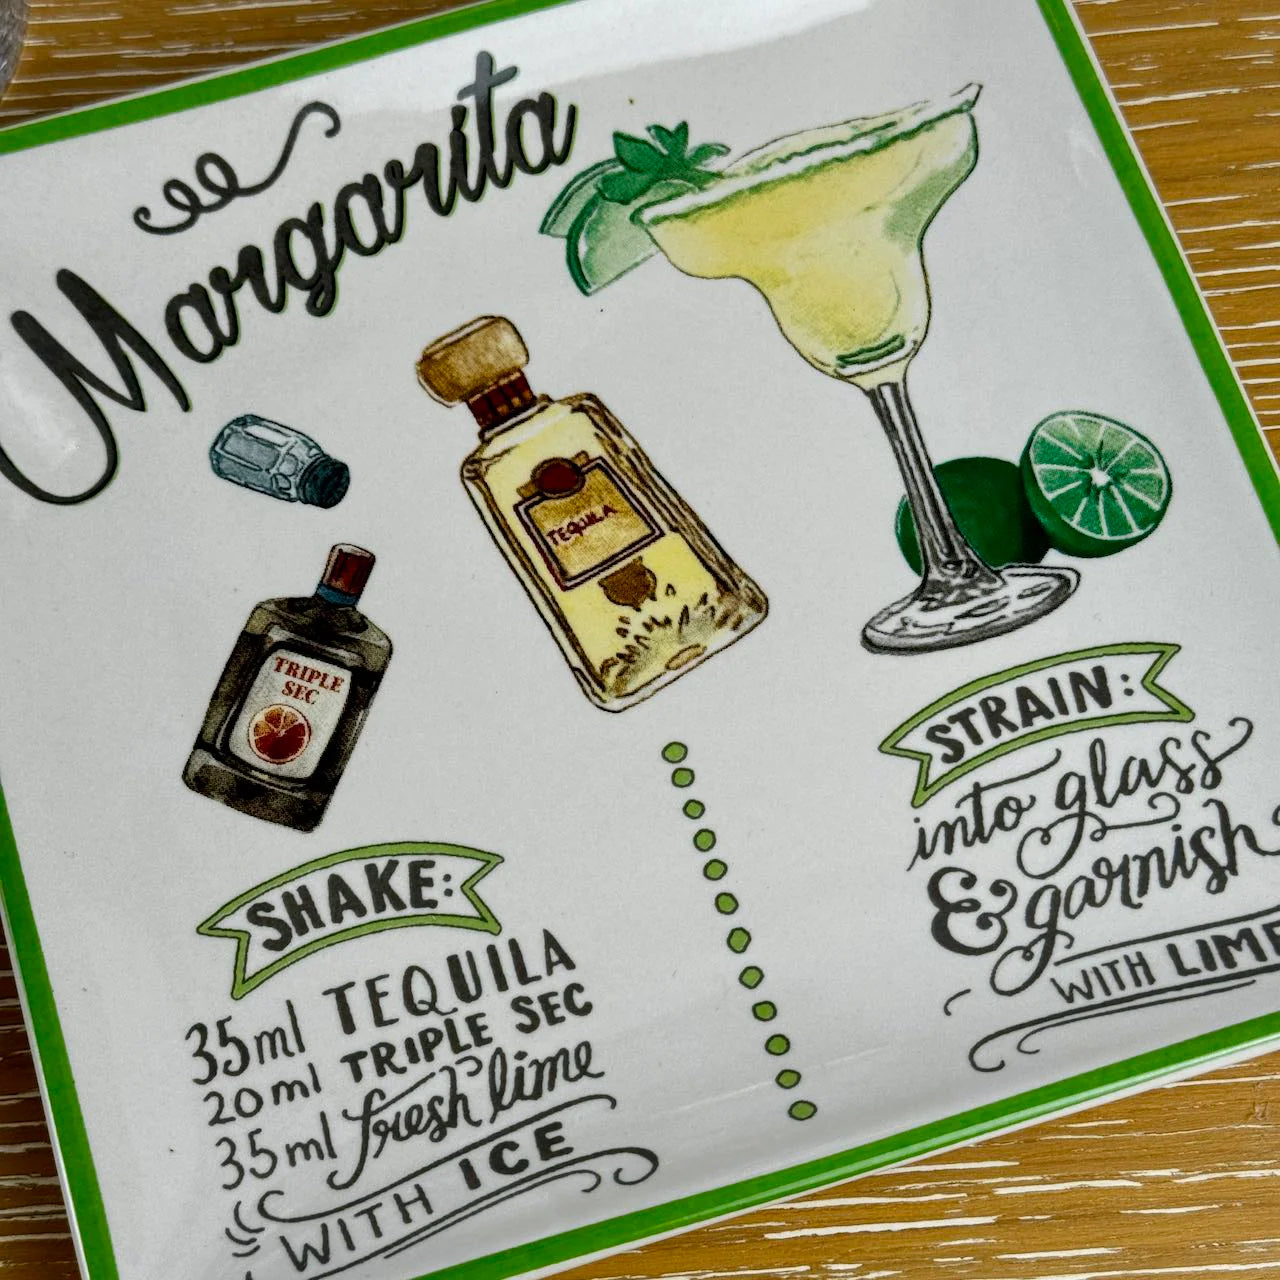 Margarita
TEQUILA
TRIPLE
SEC
SHAKE:
35ml TEQUILA
20ml TRIPLE SEC
35ml fresh lime
WITH ICE
STRAIN:
into glass
& garnish
WITH LIME